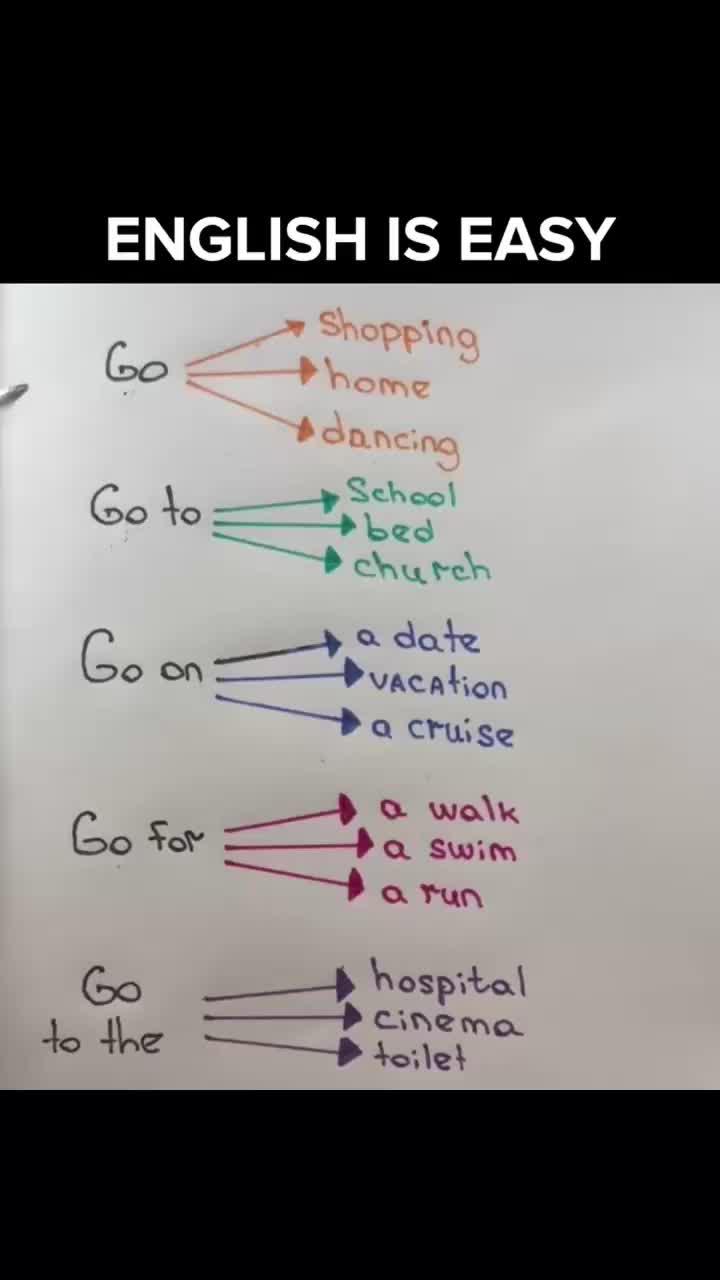 ENGLISH IS EASY
Go
Shopping
home
dancing
Go to
School
bed
church
Go on
a date
VACAtion
a cruise
Go for
a walk
a swim
a run
Go
to the
hospital
cinema
toilet